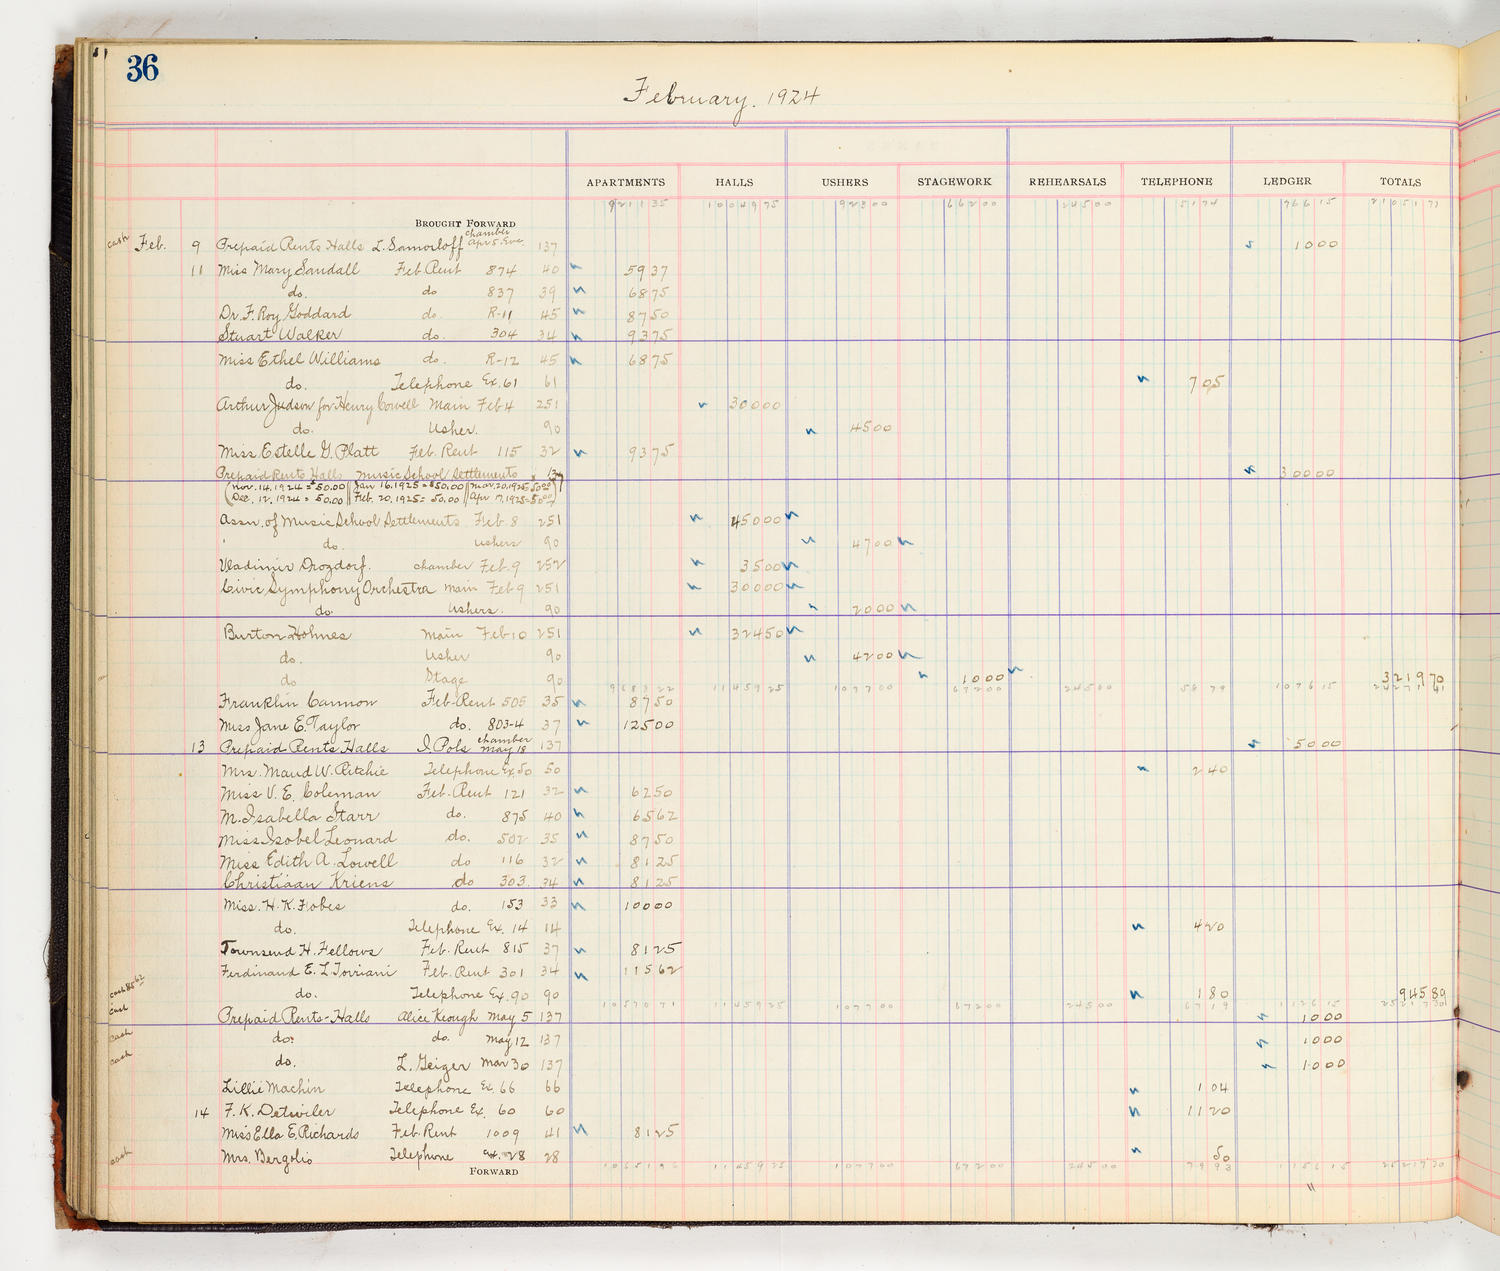 36
February. 1924
APARTMENTS HALLS USHERS STAGEWORK REHEARSALS TELEPHONE LEDGER TOTALS
BROUGHT FORWARD 9211 35 10049 75 923 00 662 00 245 00 51 74
cash Feb. 9 Prepaid Rents Halls L. Samoiloff chamber Apr 5. Eve. 137 10 00
11 Miss Mary Sandall Feb. Rent 874 40 59 37
do. do 837 39 68 75
Dr. F. Roy Goddard do. R-11 45 87 50
Stuart Walker do. 304 34 93 75
Miss Ethel Williams do. R-12 45 68 75
do. Telephone Ex. 61 61 7 05
Arthur Judson for Henry Cowell Main Feb 4 251 300 00
do. Usher. 90 45 00
Miss. Estelle G. Platt Feb. Rent 115 32 93 75
Prepaid Rents Halls Music School Settlements 137 300 00
(Nov. 14. 1924 = $50.00 || Jan 16. 1925 = $50.00 || Mar. 20, 1925 50.00)
(Dec. 12. 1924 = 50.00 || Feb. 20. 1925 = 50.00 || Apr 7. 1925 = 50.00)
Assn. of Music School Settlements Feb. 8 251 450 00
do. ushers 90 47 00
Vladimir Drozdorf. chamber Feb. 9 252 35 00
Civic Symphony Orchestra main Feb 9 251 300 00
do. ushers. 90 20 00
Burton Holmes Main Feb 10 251 324 50
do. Usher 90 42 00
do Stage 90 10 00 3219 70
9683 22 11459 25 1077 00 672 00 245 00 58 79 1076 15 24271 41
Franklin Cannon Feb-Rent 505 35 87 50
Miss Jane E. Taylor do. 803-4 37 125 00
13 Prepaid Rents Halls I. Pols chamber May 18 137 50 00
Mrs. Maud W. Ritchie Telephone Ex. 50 50 2 40
Miss V. E. Coleman Feb. Rent 121 32 62 50
M. Isabella Starr do. 875 40 65 62
Miss Isobel Leonard do. 502 35 87 50
Miss Edith A. Lowell do 116 32 81 25
Christiaan Kriens do 303. 34 81 25
Miss. H. K. Fobes do. 153 33 100 00
do. Telephone Ex. 14 14 4 20
Townsend H. Fellows Feb. Rent 815 37 81 25
Ferdinand E. L. Torriani Feb. Rent 301 34 115 62
cash 85 62 do. Telephone Ex. 90 90 1 80 945 89
10570 71 11459 25 1077 00 672 00 245 00 67 19 1126 15
cash Prepaid Rents-Halls Alice Keough May 5 137 10 00
cash do. do. May 12 137 10 00
cash do. L. Geiger Mar 30 137 10 00
Lillie Machin Telephone Ex. 66 66 1 04
14 F. K. Detwiler Telephone Ex. 60 60 11 20
Miss Ella E. Richards Feb. Rent 1009 41 81 25
cash Mrs. Bergolio Telephone ex. 28 28 50
FORWARD 10651 96 11459 25 1077 00 672 00 245 00 79 93 1156 15